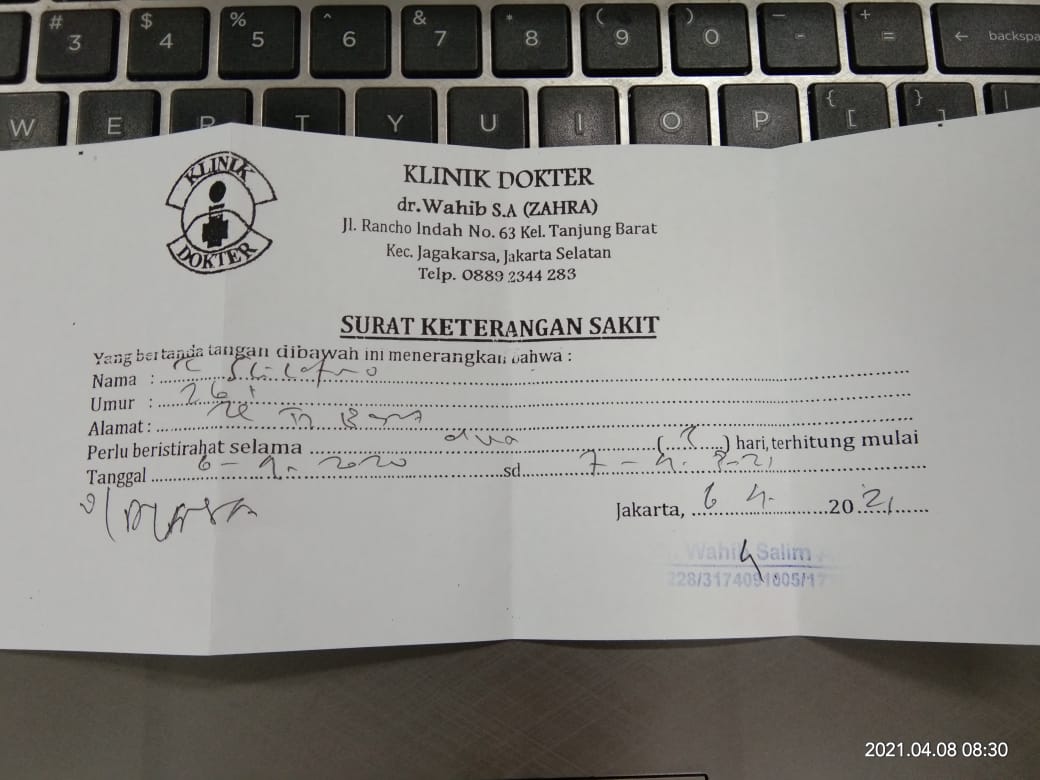 # 3 $ 4 % 5 ^ 6 & 7 * 8 ( 9 ) 0 _ - + = ← backspa
W E R T Y U I O P { [ } ] |
KLINIK
DOKTER
KLINIK DOKTER
dr.Wahib S.A (ZAHRA)
Jl. Rancho Indah No. 63 Kel. Tanjung Barat
Kec. Jagakarsa, Jakarta Selatan
Telp. 0889 2344 283
SURAT KETERANGAN SAKIT
Yang bertanda tangan dibawah ini menerangkan bahwa :
Nama :
Umur : 26
Alamat :
Perlu beristirahat selama dua ( ) hari, terhitung mulai
Tanggal 6 - 4. 2020 sd 7 - 4. 2021
Jakarta, 6 4. 2021
Wahib Salim
228/3174091005/17